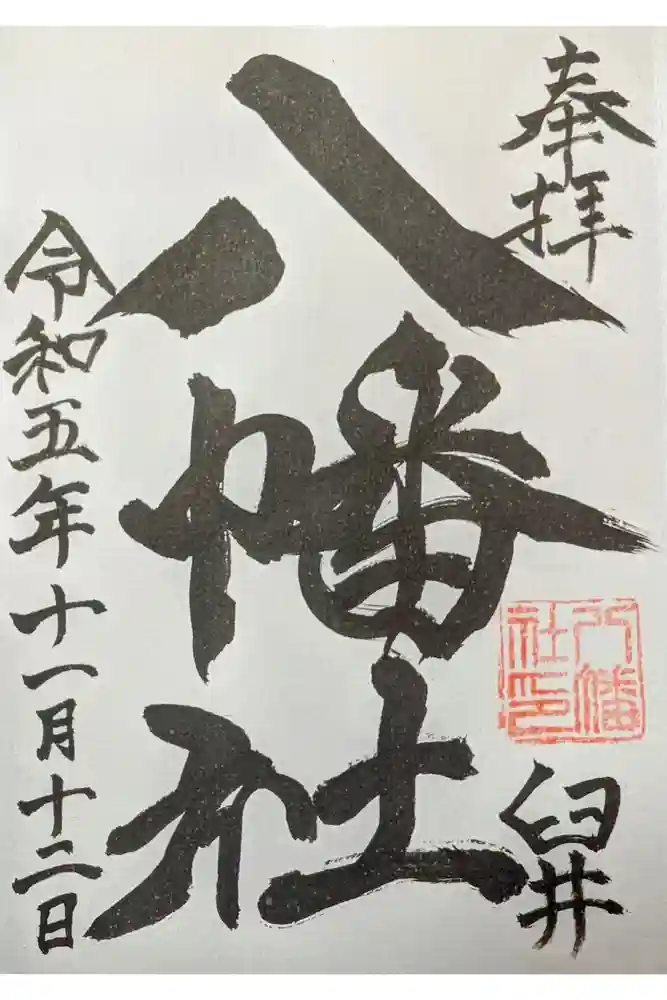 奉拝
八幡社
八幡社印
臼井
令和五年十一月十二日